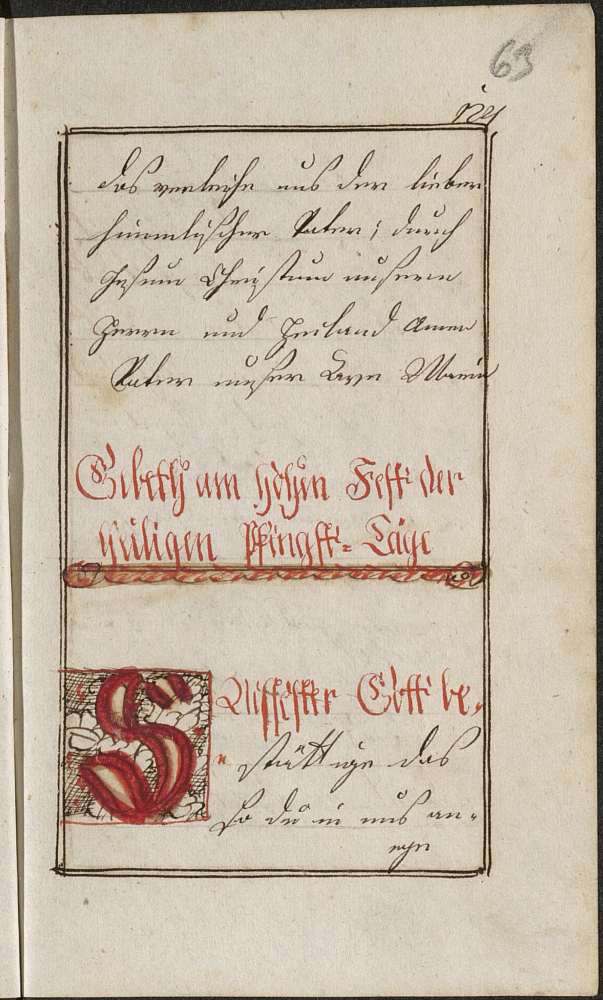 63
121
das verleihe uns der lieber
himmlischer Vater; durch
Jesum Christum unsern
Herrn und Heiland Amen
Vater unser Ave Maria
Gebeth am hohen Fest der
heiligen Pfingst=Täge
S
Gott be=
stättige das
so du in uns an=